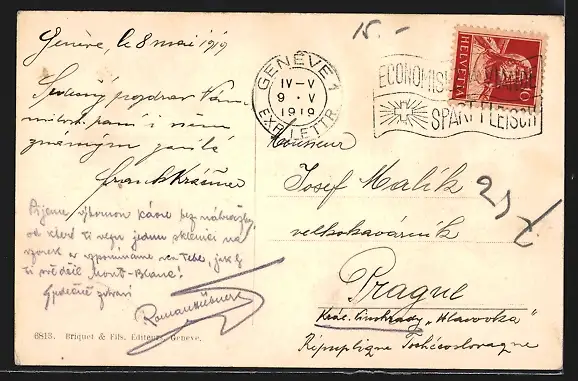 Genève, le 8 mai 1919
15.-
GENÈVE 1
IV-V
9·V
1919
EXP. LETTR.
HELVETIA
10
ECONOMISEZ LA VIANDE
SPART FLEISCH
Srdečný pozdrav Vám
milost. paní i všem
známým posílá
Frank
Pijeme výbornou kávu bez náhražky,
od které ti jednu sklenici na
vzorek a vzpomínáme na Tebe, jak
ti svědčil Mont-Blanc!
Srdečně zdraví
Monsieur
Josef Malík
velkokavárník
Prague
Král. Vinohrady „Hlavovka"
République Tschécoslovaque
6813. Briquet & Fils, Editeurs, Genève.